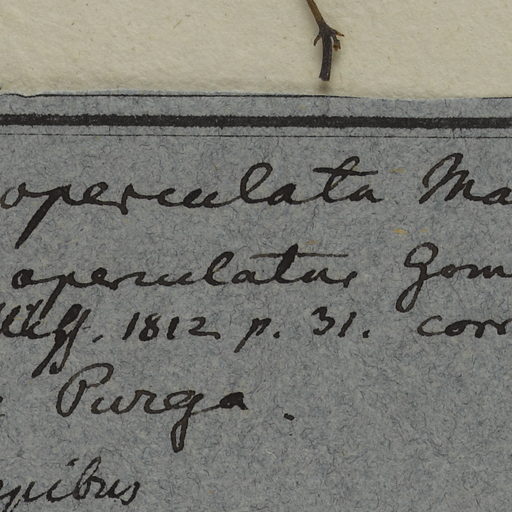 operculata Ma
operculatus Gom
diss. 1812 p. 31. corr
Purga.